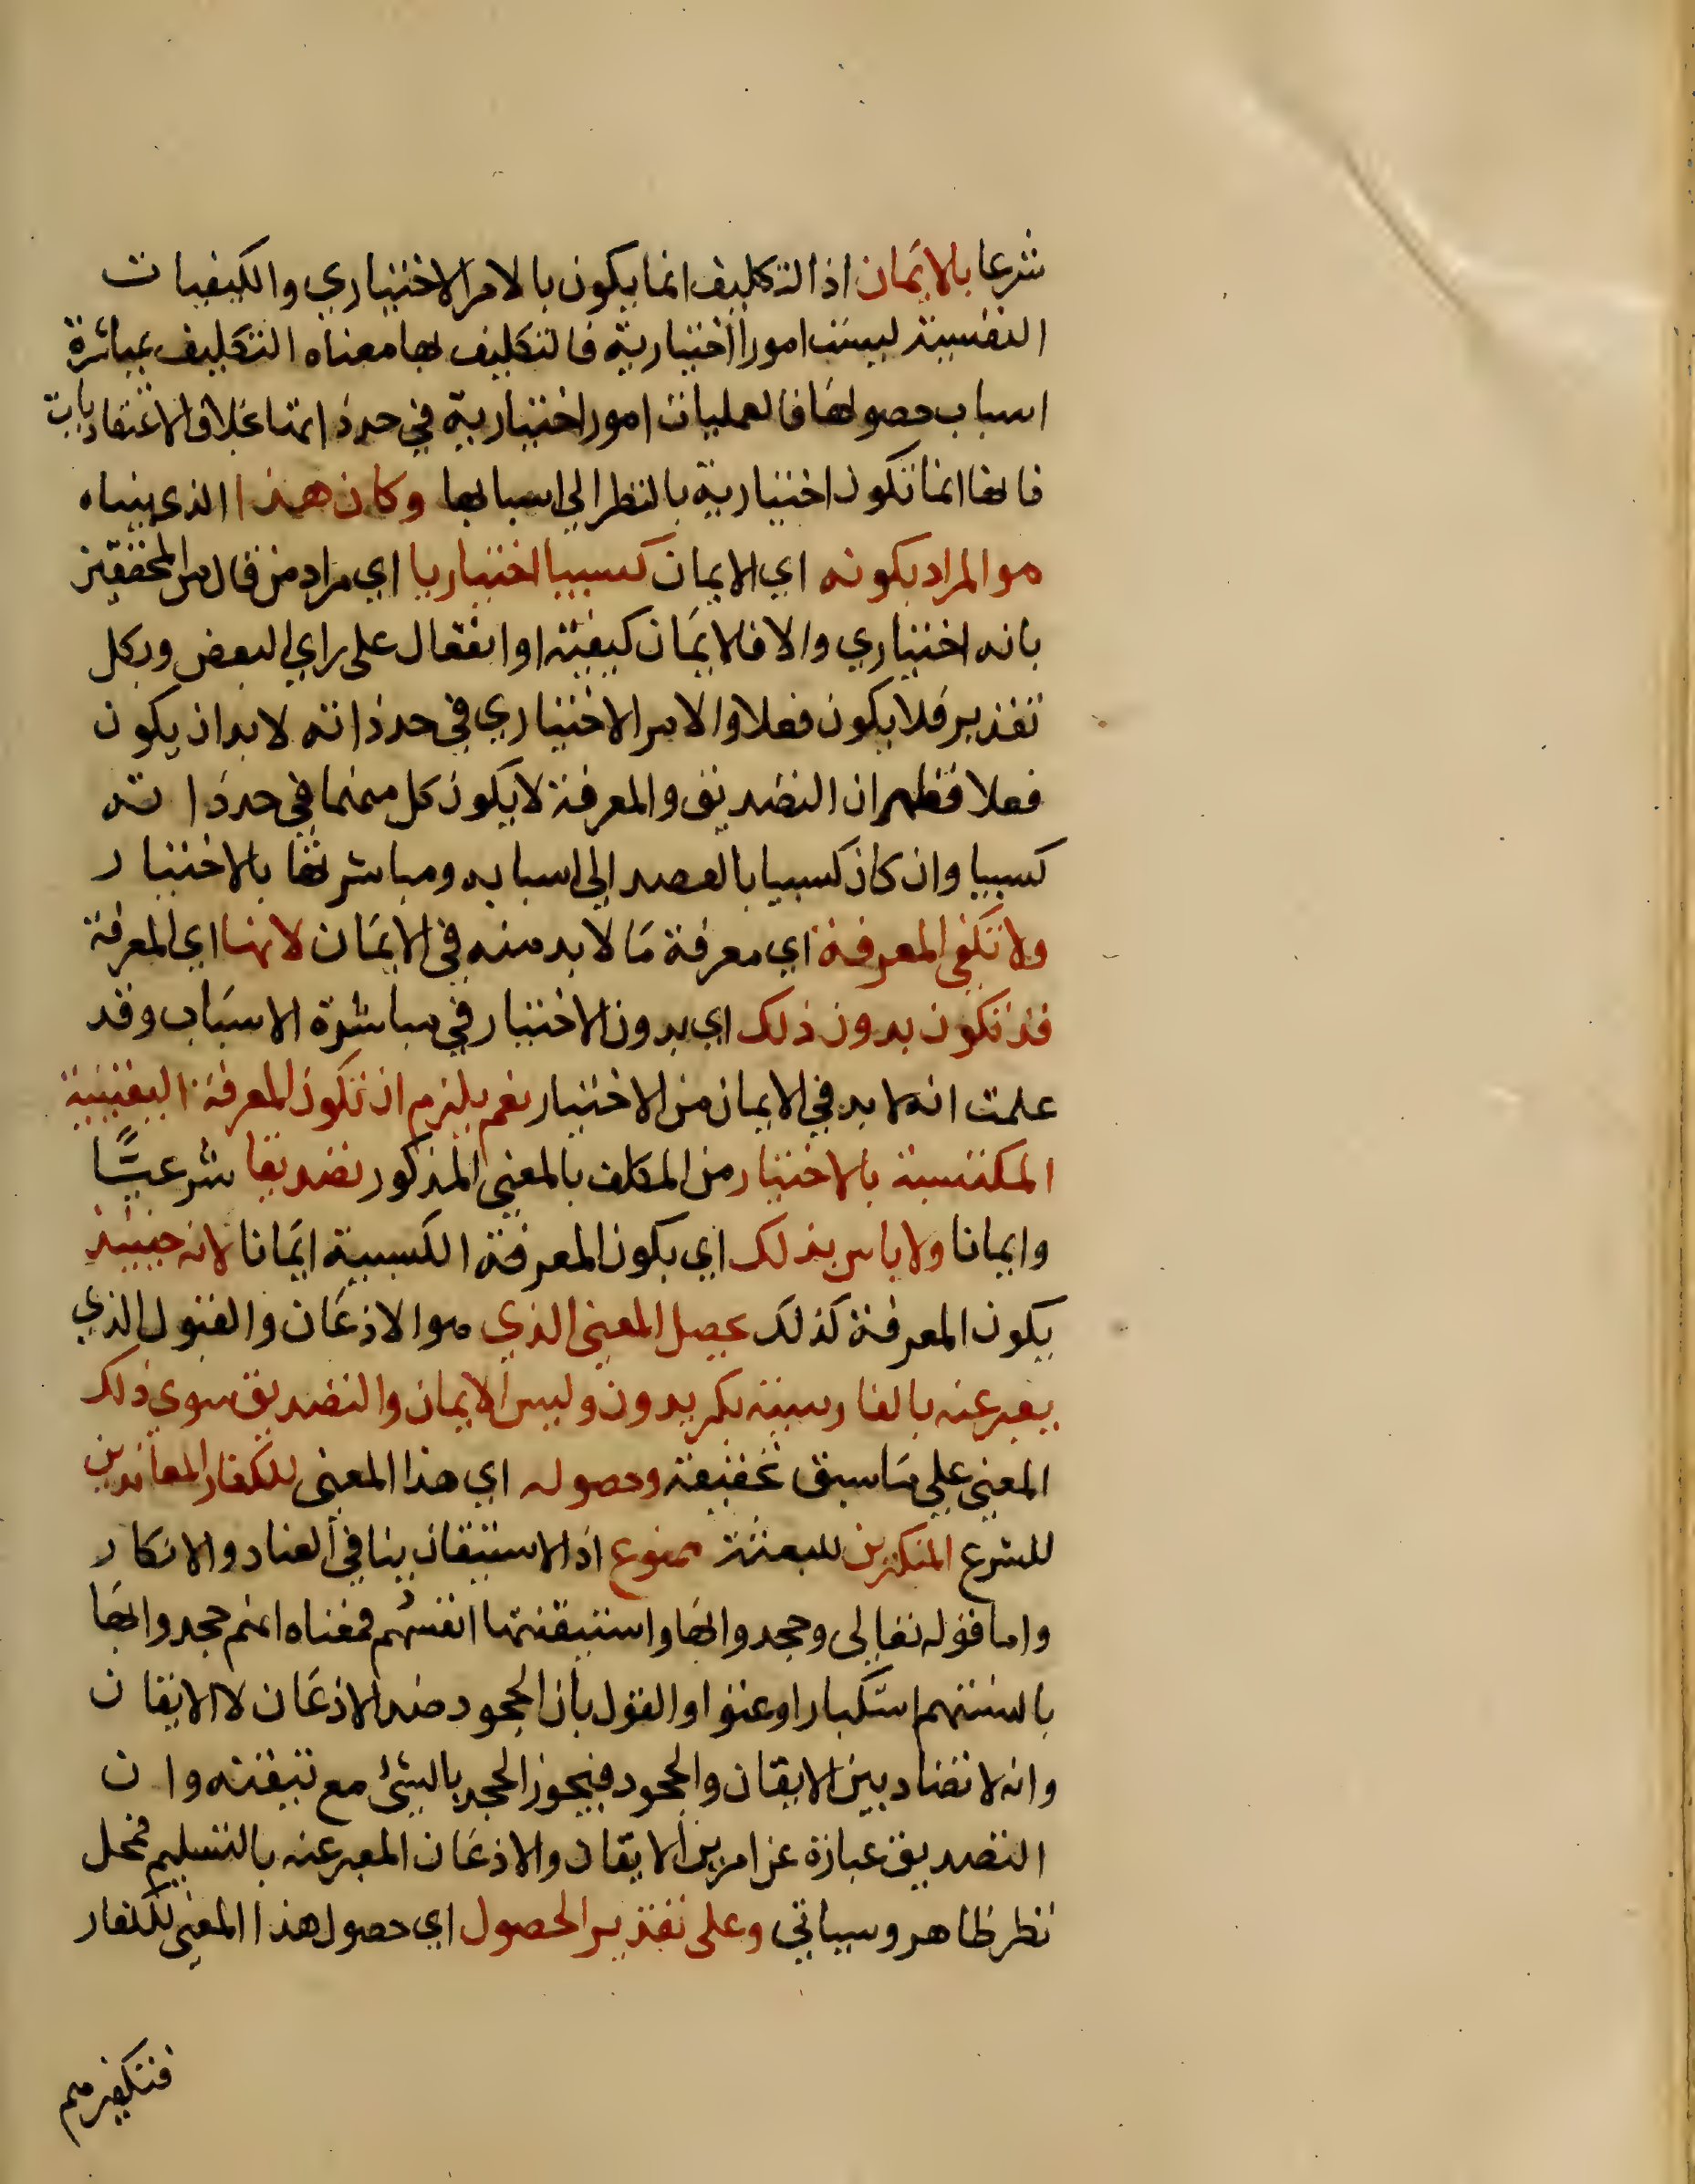 شرعا بالايمان اذ التكليف انما يكون بالامر الاختياري والكيفيات
النفسية ليست امورا اختيارية فالتكليف بها معناه التكليف بمباشرة
اسباب حصولها فالعمليات امور اختيارية في حد ذاتها بخلاف الاعتقاديات
فانها انما تكون اختيارية بالنظر الى اسبابها وكان هذا الذي بيناه
هو المراد بكونه اي الايمان كسبيا اختياريا اي مراد من قال من المحققين
بانه اختياري والا فالايمان كيفية او انفعال على راي البعض وبكل
تقدير فلا يكون فعلا والامر الاختياري في حد ذاته لا بد ان يكون
فعلا فظهر ان التصديق والمعرفة لا يكون كل منهما في حد ذاته
كسبيا وان كان كسبيا بالقصد الى اسبابه ومباشرتها بالاختيار
ولا تكفي المعرفة اي معرفة ما لا بد منه في الايمان لانها اي المعرفة
قد تكون بدون ذلك اي بدون الاختيار في مباشرة الاسباب وقد
علمت انه لا بد في الايمان من الاختيار نعم يلزم ان تكون المعرفة اليقينية
المكتسبة بالاختيار من المكلف بالمعنى المذكور تصديقا شرعيًّا
وايمانا ولا باس بذلك اي بكون المعرفة الكسبية ايمانا لانه حينئذ
يكون المعرفة كذلك يحصل المعنى الذي هو الاذعان والقبول الذي
يعبر عنه بالفارسية بكريدون وليس الايمان والتصديق سوى ذلك
المعنى على ما سبق تحقيقه وحصوله اي هذا المعنى للكفار المعاندين
للشرع المنكرين للبعثة ممنوع اذ الاستيقان ينافي العناد والانكار
واما قوله تعالى وجحدوا بها واستيقنتها انفسهم فمعناه انهم جحدوا بها
بالسنتهم استكبارا وعتوا والقول بان الجحود ضد الاذعان لا الايقان
وانه لا تضاد بين الايقان والجحود فيجوز الجحد بالشئ مع تيقنه وان
التصديق عبارة عن امرين الايقان والاذعان المعبر عنه بالتسليم فمحل
نظر ظاهر وسياتي وعلى تقدير الحصول اي حصول هذا المعنى للكفار
فتكفيرهم